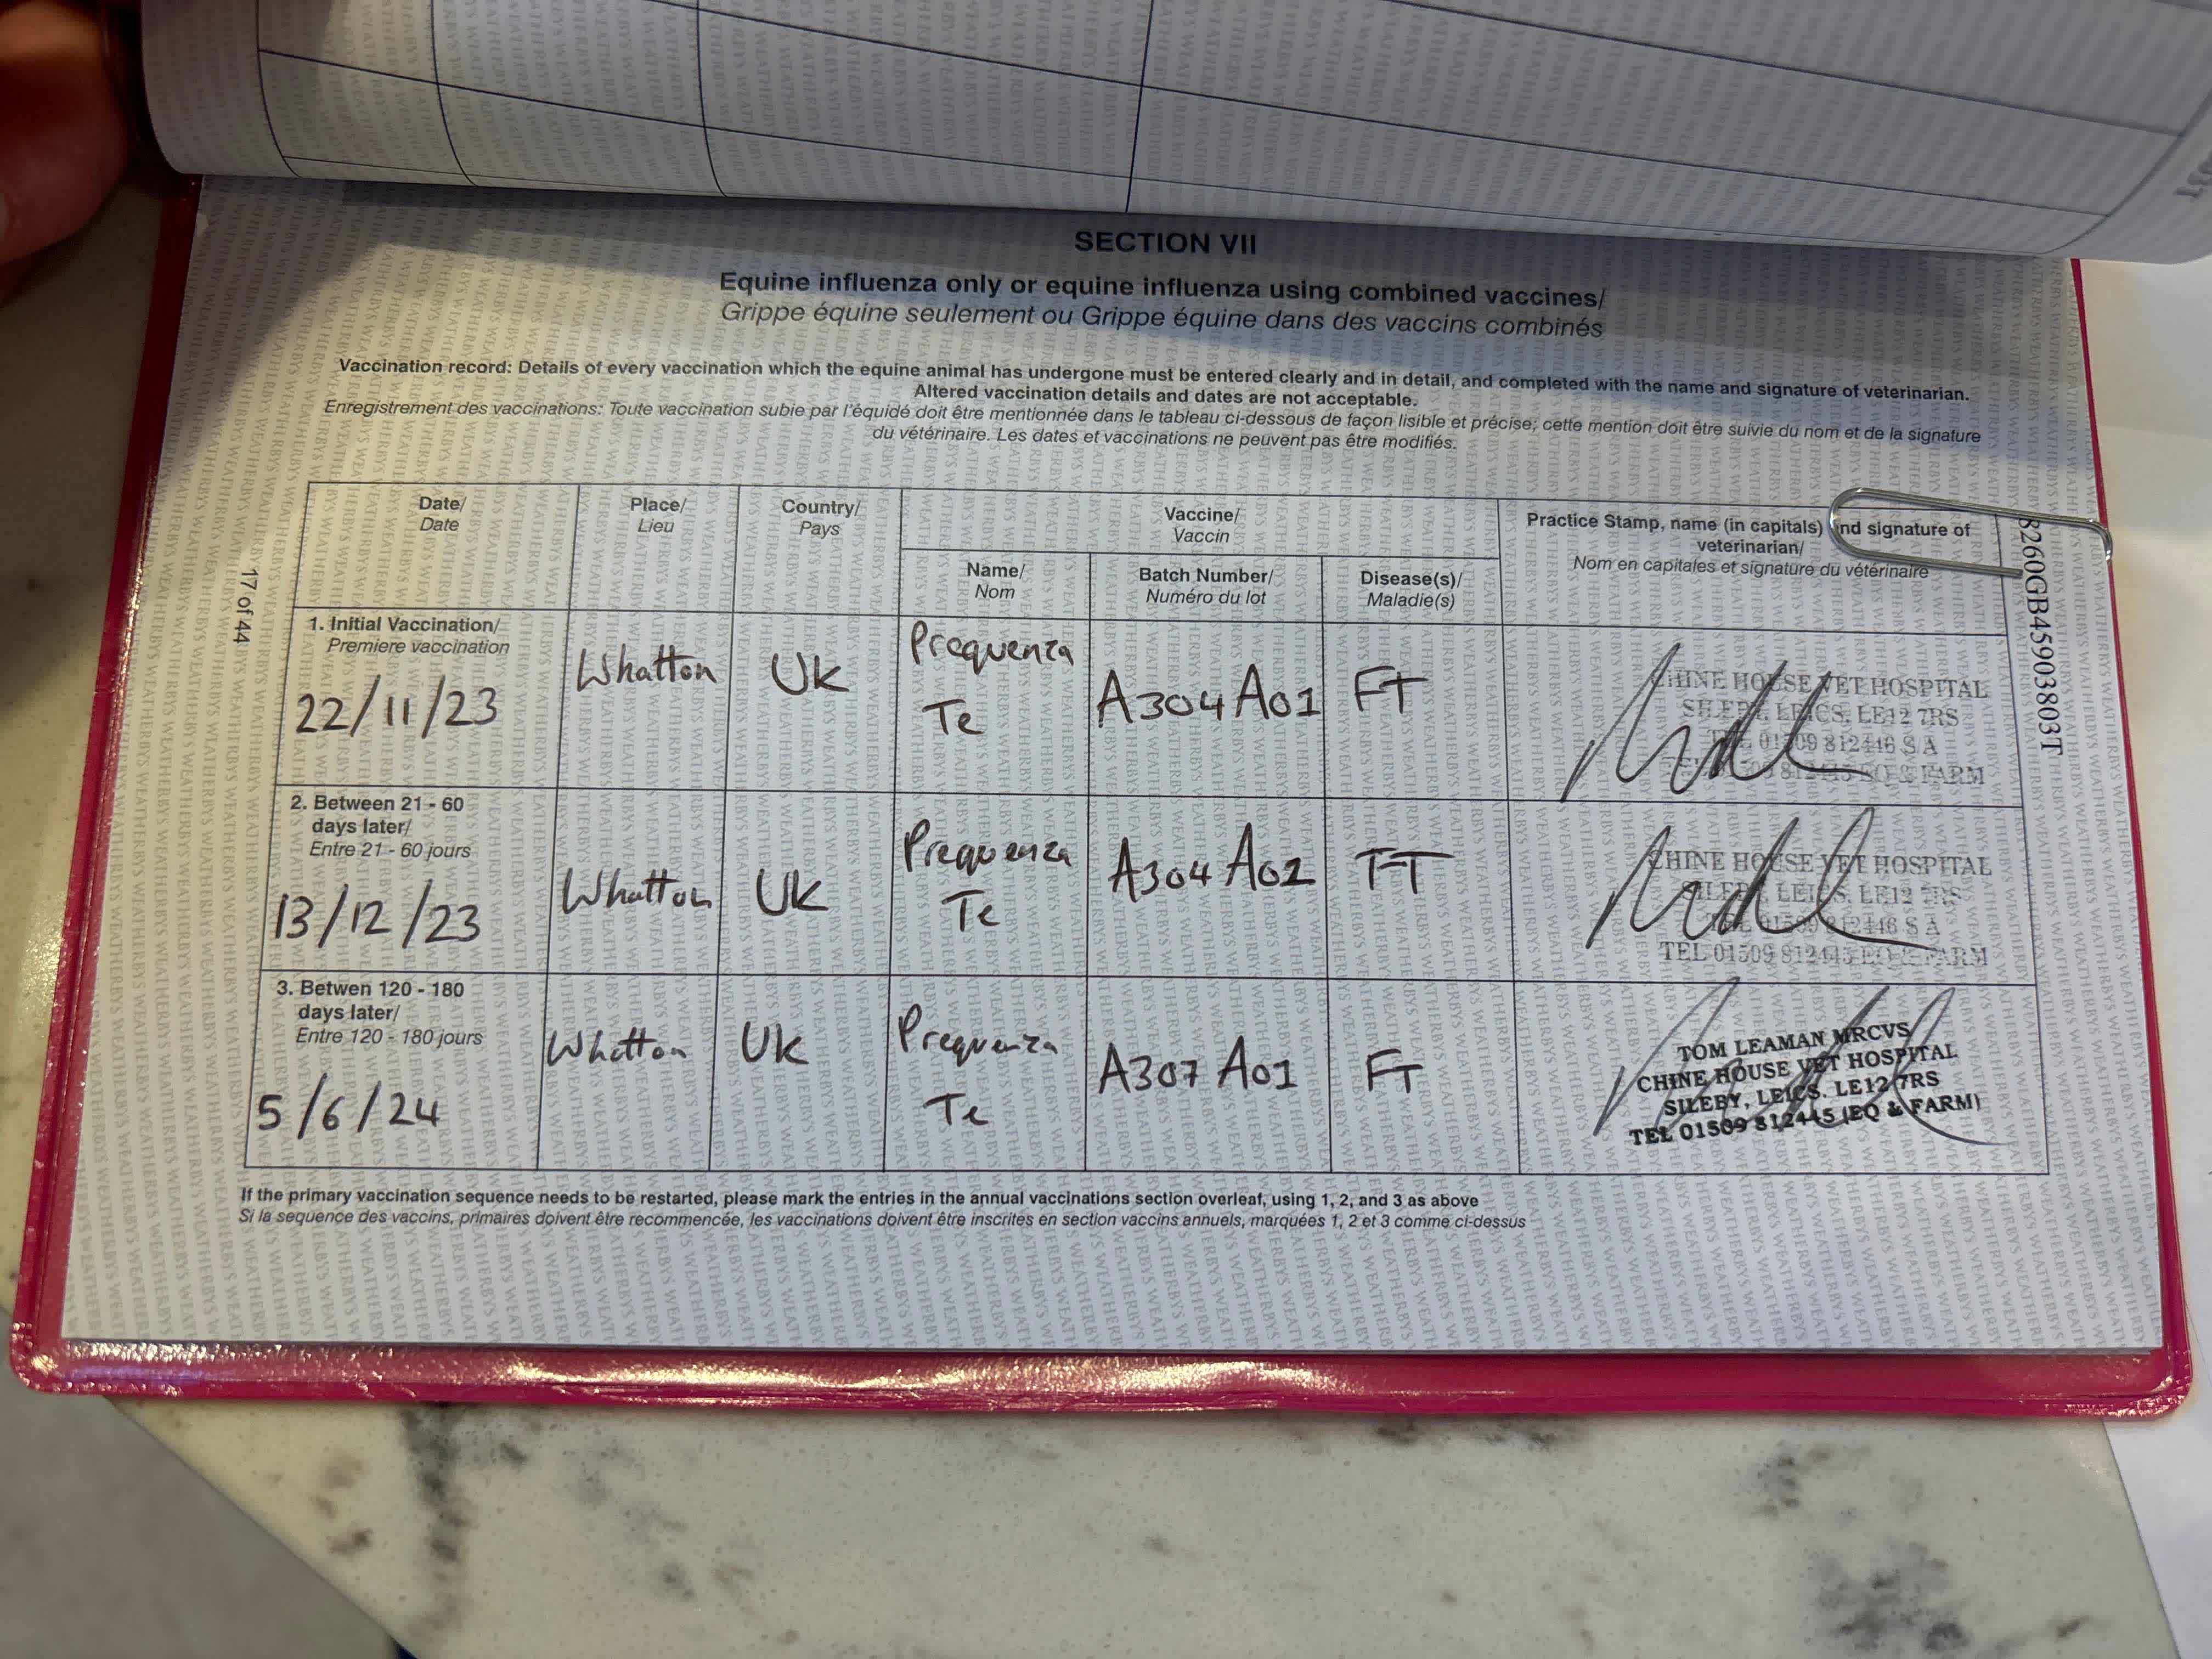 SECTION VII
Equine influenza only or equine influenza using combined vaccines/
Grippe équine seulement ou Grippe équine dans des vaccins combinés
Vaccination record: Details of every vaccination which the equine animal has undergone must be entered clearly and in detail, and completed with the name and signature of veterinarian.
Altered vaccination details and dates are not acceptable.
Enregistrement des vaccinations: Toute vaccination subie par l'équidé doit être mentionnée dans le tableau ci-dessous de façon lisible et précise; cette mention doit être suivie du nom et de la signature
du vétérinaire. Les dates et vaccinations ne peuvent pas être modifiés.
Date/
Date
Place/
Lieu
Country/
Pays
Vaccine/
Vaccin
Name/
Nom
Batch Number/
Numéro du lot
Disease(s)/
Maladie(s)
Practice Stamp, name (in capitals) nd signature of
veterinarian/
Nom en capitales et signature du vétérinaire
1. Initial Vaccination/
Premiere vaccination
22/11/23
Whatton
UK
Prequenza
Te
A304A01
FT
CHINE HOUSE VET HOSPITAL
SILEBY, LEICS. LE12 7RS
TEL 01509 812446 S A
TEL 01509 812445 EQ & FARM
2. Between 21 - 60
days later/
Entre 21 - 60 jours
13/12/23
Whatton
UK
Prequenza
Te
A304A01
FT
CHINE HOUSE VET HOSPITAL
SILEBY, LEICS. LE12 7RS
TEL 01509 812446 S A
TEL 01509 812445 EQ & FARM
3. Betwen 120 - 180
days later/
Entre 120 - 180 jours
5/6/24
Whatton
UK
Prequenza
Te
A307A01
FT
TOM LEAMAN MRCVS
CHINE HOUSE VET HOSPITAL
SILEBY, LEICS. LE12 7RS
TEL 01509 812445 (EQ & FARM)
If the primary vaccination sequence needs to be restarted, please mark the entries in the annual vaccinations section overleaf, using 1, 2, and 3 as above
Si la sequence des vaccins, primaires doivent être recommencée, les vaccinations doivent être inscrites en section vaccins annuels, marquées 1, 2 et 3 comme ci-dessus
17 of 44
8260GB45903803T
WEATHERBYS